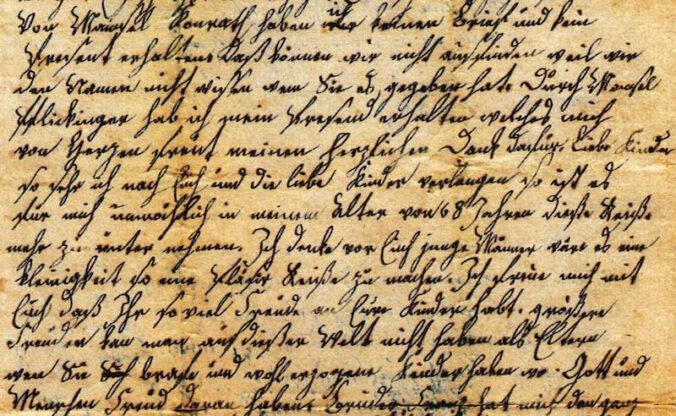 Von Mamsel Konrath haben wir keinen Brief und kein
Present erhalten Daß können wir nicht ausfinden weil wir
den Namen nicht wissen wem Sie es gegeben hat. Durch Mamsel
Flickinger hab ich mein Present erhalten welches mich
von Herzen freut meinen herzlichen Dank dafür. Liebe Kinder
so sehr ich nach Euch und die liebe Kinder verlangen so ist es
für mich unmöhlich in meinem Alter von 68 Jahren dieße Reiße
mehr zu unter nehmen. Ich denke vor Euch junge Männer wäre es eine
Kleinigkeit so eine Pläsir Reiße zu machen. Ich freue mich mit
Euch daß Ihr so viel Freude an Eure Kinder habt. größere
Freuden kan man auf dießer Welt nicht haben als Eltern
wen Sie brafe und wohl erzogene Kinder haben wo Gott und
Menschen Freud daran haben. Bruder hat mich den ganz